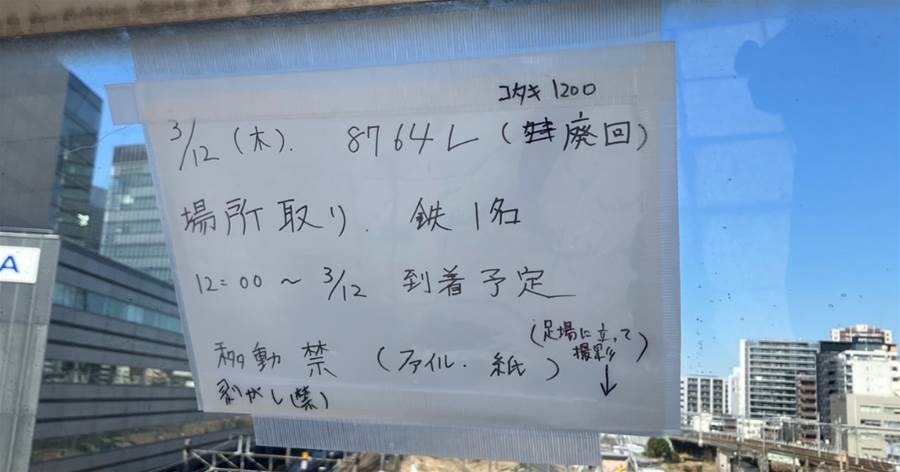 コタキ 1200
3/12 (木). 8764レ (廃回)
場所取り. 鉄1名
12:00 ~ 3/12 到着予定
(足場に立って
撮影)
移動禁 (ファイル・紙) ↓
剥がし(禁)
A